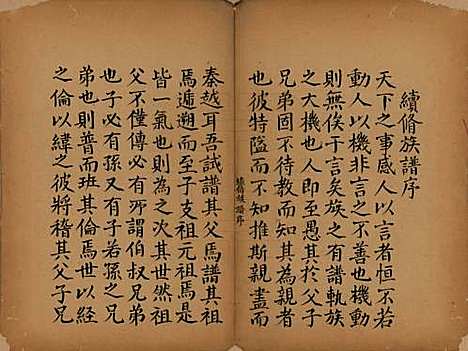 續脩族譜序
天下之事感人以言者恒不若
動人以機非言之不善也機動
則無俟于言矣族之有譜孰族
之大機也人即至愚其於父子
兄弟固不待教而知愛知敬焉
也彼特隘而不知推斯親盡而
續脩族譜序
秦越耳吾試譜其父焉譜其祖
焉遞遡而至于支祖元祖焉是
皆一氣也則為之次其世然祖
父不僅傳必有所謂伯叔兄弟
也子必有孫又有子若孫之兄
弟也則普而班其倫焉世以經
之倫以緯之彼將稽其父子兄